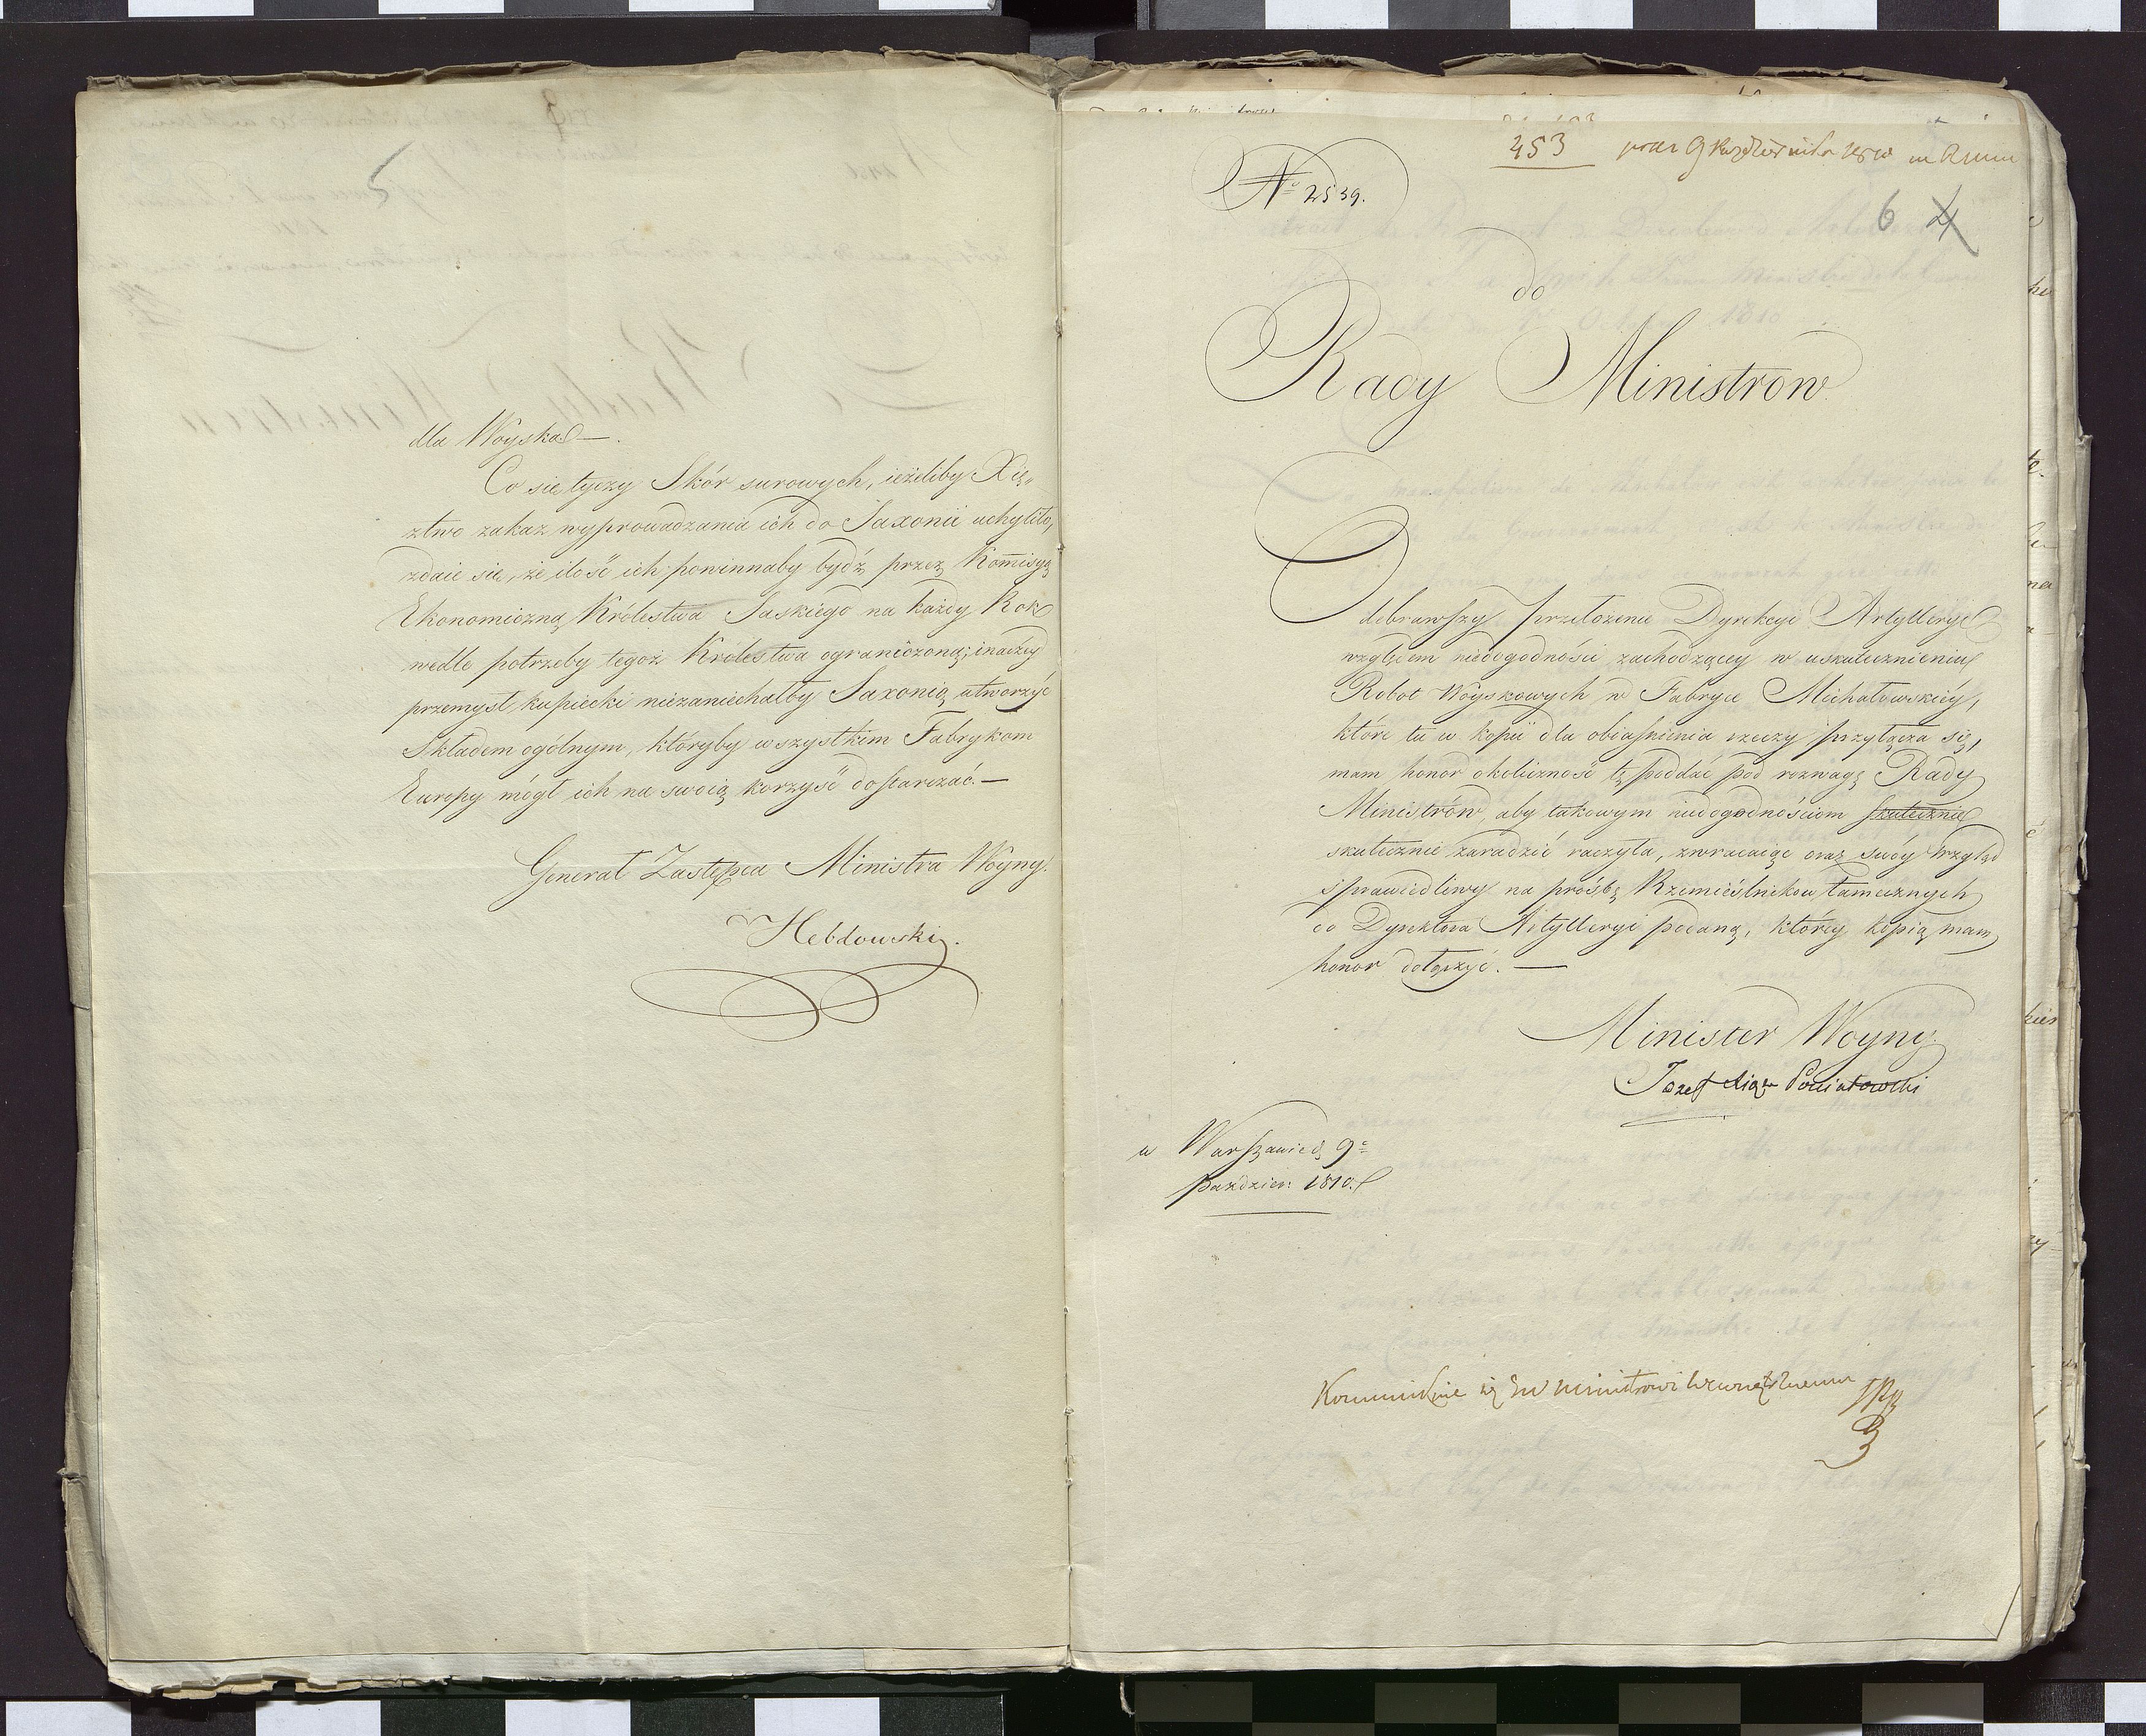 5
dla Woyska —.
Co się tyczy Skór surowych, ieżeliby Xię„
ztwo zakaz wyprowadzania ich do Saxonii uchyliło,
zdaie się, że ilość ich powinnaby bydź przez Kom̄isyą
Ekonomiczną Królestwa Saskiego na każdy Rok
wedle potrzeby tegoż Królestwa ograniczoną; inaczey
przemysł kupiecki niezaniechałby Saxonią utworzyć
Składem ogólnym, któryby wszystkim Fabrykom
Europy mógł ich na swoią korzyść dostarczać. —
Generał Zastępca Ministra Woyny.
Hebdowski.
453 9 Października 1810
No 2539.
6 4
do
Rady Ministrow
Odebrawszy przełożenie Dyrekcyi Artylleryi
względem niedogodności zachodzącey w uskutecznieniu
Robot Woyskowych w Fabryce Michałowskiéy,
które tu w kopii dla obiaśnienia rzeczy przyłącza się,
mam honor okoliczność tę poddać pod rozwagę Rady
Ministrów, aby takowym niedogodnościom skutecznie
skutecznie zaradzić raczyła, zwracaiąc oraz swóy Wzgląd
sprawiedliwy na prośbę Rzemieślników tamecznych
do Dyrektora Artylleryi podaną, którey kopią mam
honor dołączyć. —
Minister Woyny
Jozef Xiąże Poniatowski
w Warszawie d. 9
Paździer: 1810.
Kommunikuie się JW Ministrowi Wewnętrznemu